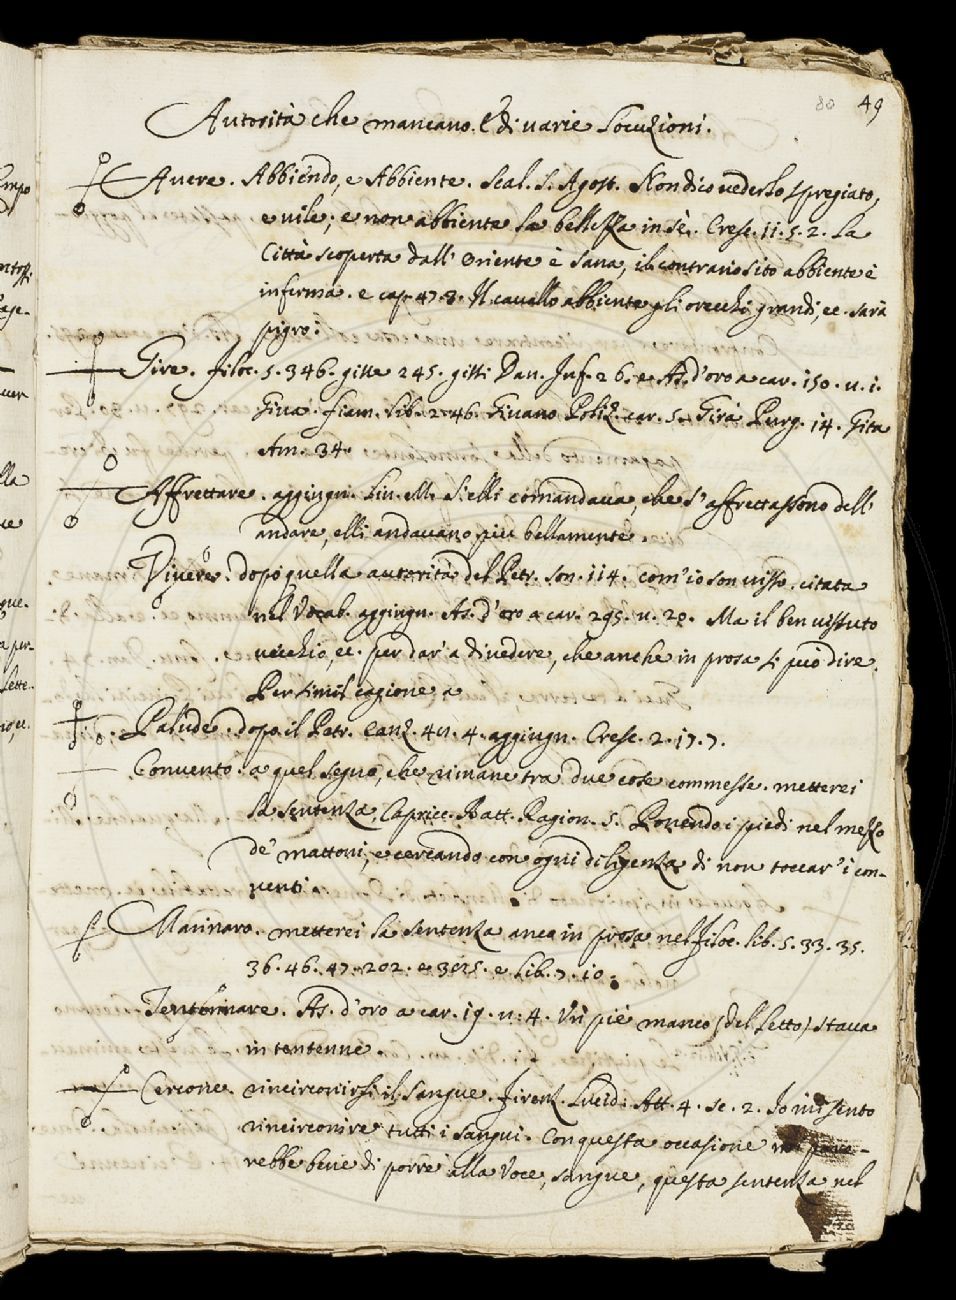 80 49
Autorità che mancano. E di varie locuzioni.
Avere. Abbiendo, e Abbiente. Scal. S. Agost. Non dico vederlo spregiato,
e vile; e non abbiente la bellezza in sè. Cresc. 11. 5. 2. La
Città scoperta dall' oriente è sana, il contrario sito abbiente è
inferma. e cap. 47. 8. Il cavallo abbiente gli orecchi grandi, ec. sarà
pigro.
Gire. Filoc. 5. 346. gisse 245. gissi Dan. Inf. 26. e As. d'oro a car. 150. u. i.
Giva. fiam. lib. 2. 46. Givano Poliz. car. 5. Girà Purg. 14. Gita
Am. 34.
Affrettare. aggiugn. Liv. M. S'elli comandava, che s'affrettassono dell'
andare, elli andavano più bellamente.
Vivere. dopo quella autorità del Petr. son. 114. com' io son visso. citata
nel Vocab. aggiugn. As. d'oro a car. 295. u. 20. Ma il ben vissuto
vecchio, ec. per dar' a divedere, che anche in prosa si può dire.
Per simil cagione a
Palude. dopo il Petr. Canz. 41. 4. aggiugn. Cresc. 2. 17. 7.
Convento. a quel segno, che rimane tra due cose commesse. metterei
la sentenza, Caprice. Bott. Ragion. 5. Ponendo i piedi nel mezzo
de' mattoni, e cercando con ogni diligenza di non toccar' i con-
venti.
Marinaro. metterei la sentenza anca in prosa nel Filoc. lib. 5. 33. 35.
36. 46. 47. 202. e 305. e lib. 7. 10.
Tentennare. As. d'oro a car. 19. u. 4. Un piè manco (del letto) stava
in tentenne.
Cercone. rincirconirsi il sangue. Firenz. Lucid. Att. 4. sc. 2. Io mi sento
rincirconire tutti i sangui. Con questa occasione
rebbe bene di porre alla voce, sangue, questa sentenza nel